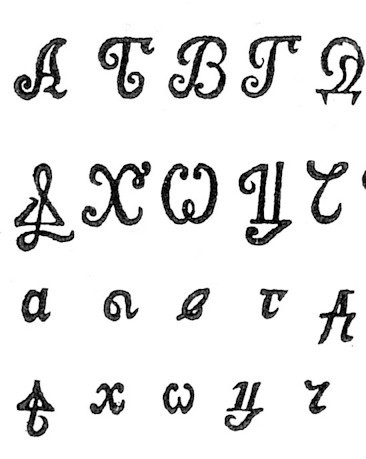 А Б В Г Д
Ѳ Х Ѡ Ц Ч
а б в г д
ѳ х ѡ ц ч